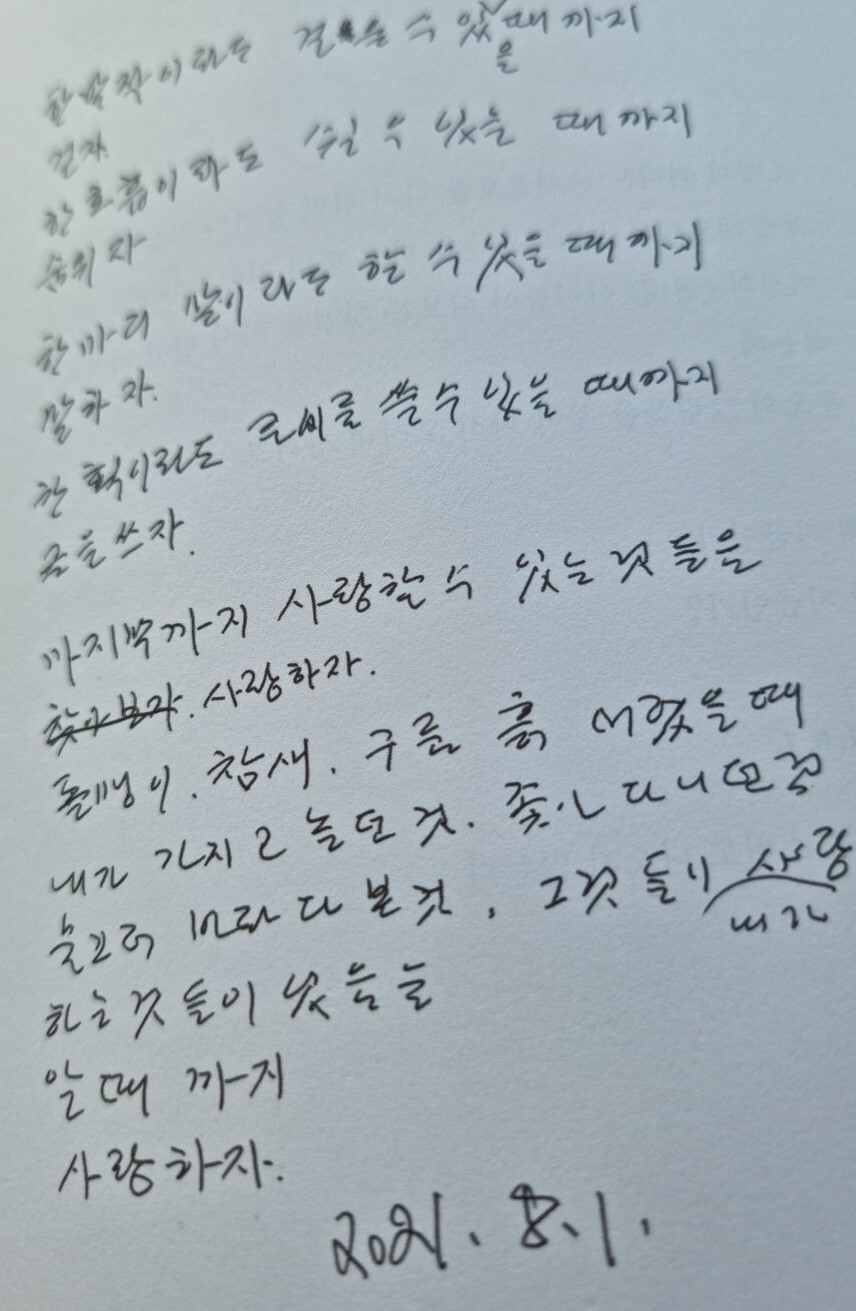 한 발작이라도 걸을 수 있을 때까지
걷자.
한 호흡이라도 쉬일 수 있을 때까지
숨쉬자
한마디 말이라도 할 수 있을 때까지
말하자.
한 획이라도 글씨를 쓸 수 있을 때까지
글을 쓰자.
마지막까지 사랑할 수 있는 것들을
찾아보자. 사랑하자.
돌멩이. 참새. 구름 흙 어렸을 때
내가 가지고 놀던 것. 쫓아다니던 것
눈으로 바라다 본 것, 그것들이 내가 사랑
하는 것들이 있음을
알 때까지
사랑하자.
2021. 8. 1.